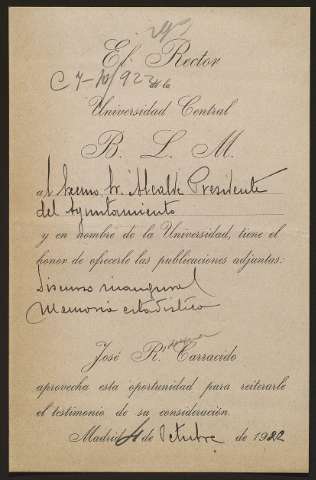 El Rector
C 4-10/922 de la
Universidad Central
B. L. M.
al Excmo Sr. Alcalde Presidente
del Ayuntamiento
y en nombre de la Universidad, tiene el
honor de ofrecerle las publicaciones adjuntas:
Discurso inaugural
Memoria estadistica
José R. Carracido
aprovecha esta oportunidad para reiterarle
el testimonio de su consideración.
Madrid 4 de Octubre de 1922